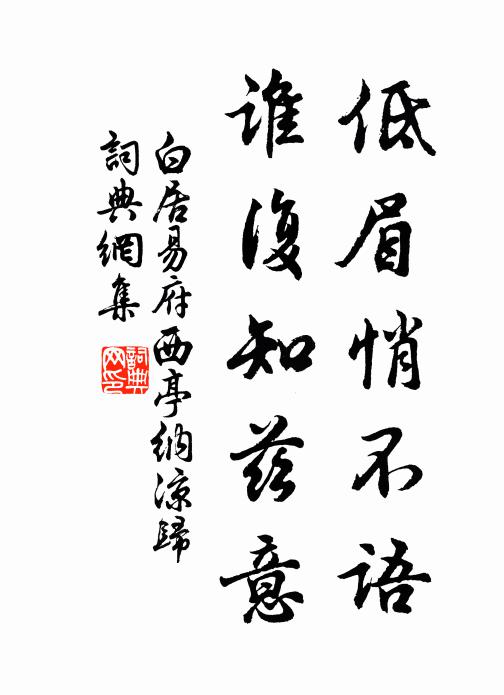 低眉悄不語
谁復知兹意
白居易府西亭納涼歸
詞典網集
詞典網印